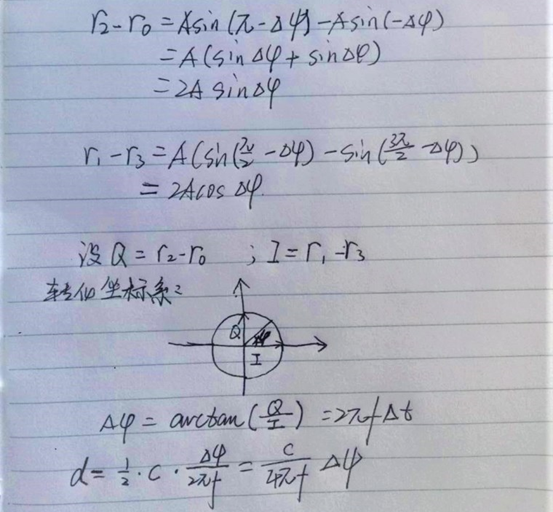 r₂-r₀ = Asin(π-Δφ)-Asin(-Δφ)
= A(sinΔφ + sinΔφ)
= 2A sinΔφ
r₁-r₃ = A(sin(π/2-Δφ)-sin(3π/2-Δφ))
= 2A cosΔφ.
设Q = r₂-r₀ ; I = r₁-r₃
转化坐标系:
Q Δφ
I
Δφ = arctan(Q/I) = 2πfΔt
d = 1/2·c·Δφ/2πf = c/4πf Δφ